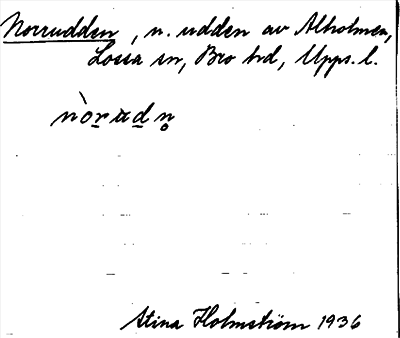 Norrudden, n. udden av Alholmen,
Lossa sn, Bro hd, Upps. l.
nòrudn̥
Stina Holmström 1936